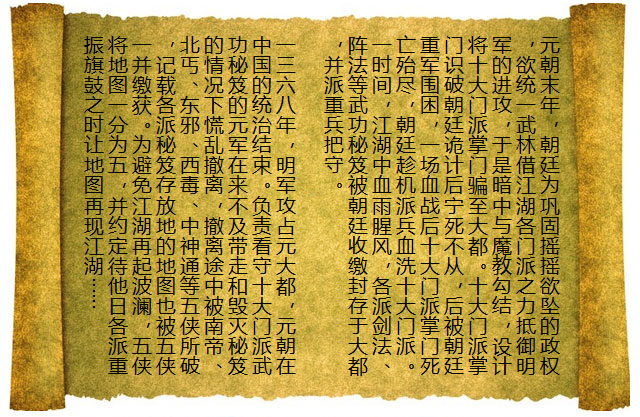 元朝末年，朝廷为巩固摇摇欲坠的政权
，欲统一武林借江湖各门派之力抵御明
军的进攻，于是暗中与魔教勾结，设计
将十大门派掌门骗至大都。十大门派掌
门识破朝廷诡计后宁死不从，后被朝廷
重军围困，一场血战后十大门派掌门死
亡殆尽，朝廷趁机派兵血洗十大门派。
一时间，江湖中血雨腥风，各派剑法、
阵法等武功秘笈被朝廷收缴封存于大都
，并派重兵把守。
一三六八年，明军攻占元大都，元朝在
中国的统治结束。负责看守十大门派武
功秘笈的元军在来不及带走和毁灭秘笈
的情况下慌乱撤离，撤离途中被南帝、
北丐、东邪、西毒、中神通等五侠所破
，记载各派秘笈存放地的地图也被五侠
一并缴获。为避免江湖再起波澜，五侠
将地图一分为五，并约定待他日各派重
振旗鼓之时让地图再现江湖……